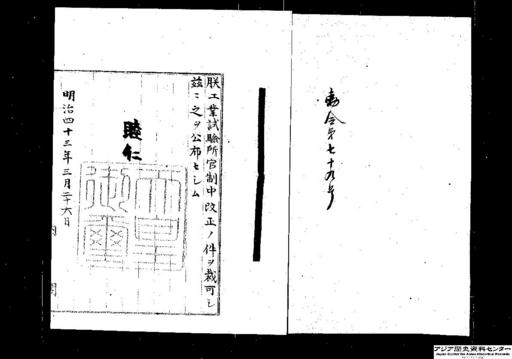 勅令第七十九号
朕工業試験所官制中改正ノ件ヲ裁可シ
茲ニ之ヲ公布セシム
睦仁
天皇御璽
明治四十三年三月二十六日
内閣
アジア歴史資料センター
Japan Center for Asian Historical Records